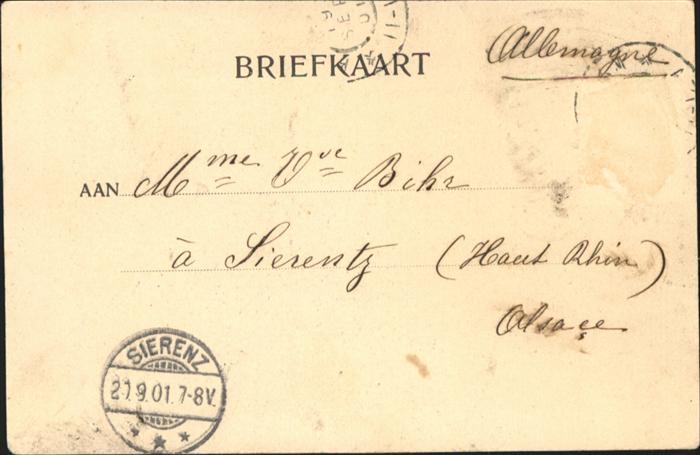 Allemagne
BRIEFKAART
AAN Mme Vve Bihr
à Sierentz (Haut Rhin)
Alsace
SIERENZ
21.9.01.7-8V.